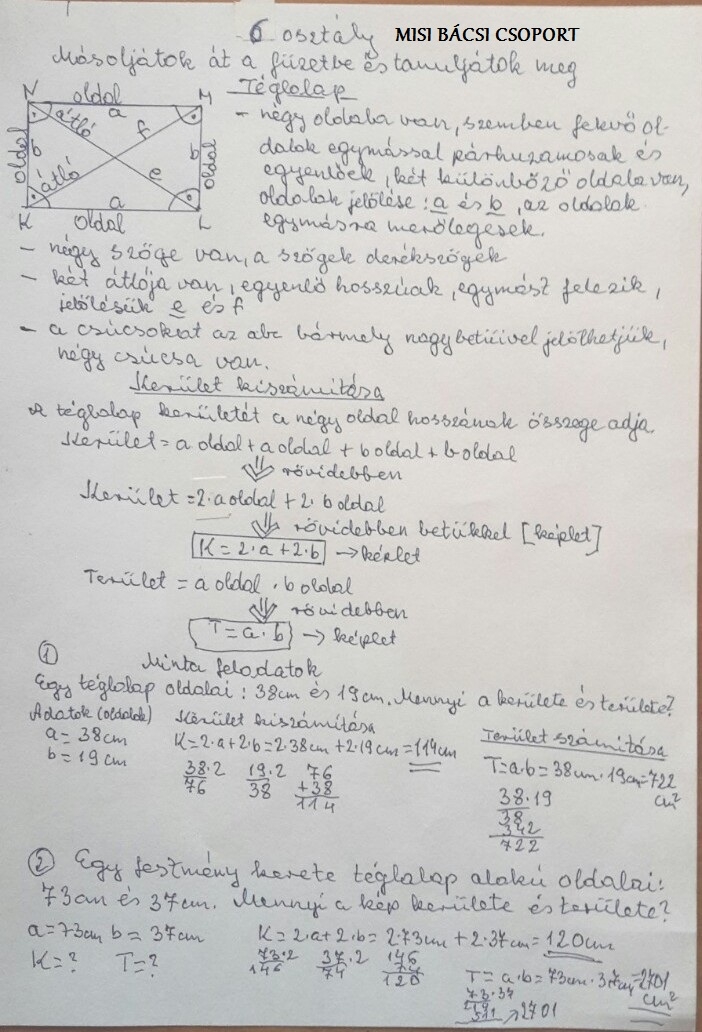 6 osztály MISI BÁCSI CSOPORT
Másoljátok át a füzetbe és tanuljátok meg
N oldal M Téglalap
a
átló f
oldal b b oldal
átló e
a
K oldal L
- négy oldala van, szemben fekvő ol-
dalok egymással párhuzamosak és
egyenlőek, két különböző oldala van,
oldalak jelölése: a és b, az oldalak
egymásra merőlegesek.
- négy szöge van, a szögek derékszögek
- két átlója van, egyenlő hosszúak, egymást felezik,
jelölésük e és f
- a csúcsokat az abc bármely nagybetűivel jelölhetjük,
négy csúcsa van.
Kerület kiszámítása
A téglalap kerületét a négy oldal hosszának összege adja.
Kerület = a oldal + a oldal + b oldal + b oldal
⇓ rövidebben
Kerület = 2·a oldal + 2·b oldal
⇓ rövidebben betűkkel [képlet]
K = 2·a + 2·b → képlet
Terület = a oldal · b oldal
⇓ rövidebben
T = a·b → képlet
① Minta feladatok
Egy téglalap oldalai: 38cm és 19cm. Mennyi a kerülete és területe?
Adatok (oldalak) Kerület kiszámítása Terület számítása
a = 38cm K = 2·a + 2·b = 2·38cm + 2·19cm = 114cm T = a·b = 38cm·19cm = 722
b = 19cm cm²
38·2 19·2 76 38·19
76 38 +38 38
114 342
722
② Egy festmény kerete téglalap alakú oldalai:
73cm és 37cm. Mennyi a kép kerülete és területe?
a = 73cm b = 37cm K = 2·a + 2·b = 2·73cm + 2·37cm = 120cm
K = ? T = ? 73·2 37·2 146
146 74 74
120
T = a·b = 73cm·37cm = 2701
cm²
73·37
219
511 → 2701